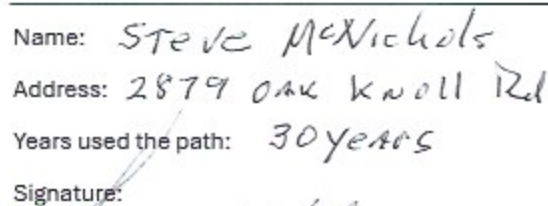 Name: Steve McNichols
Address: 2879 Oak Knoll Rd
Years used the path: 30 years
Signature: